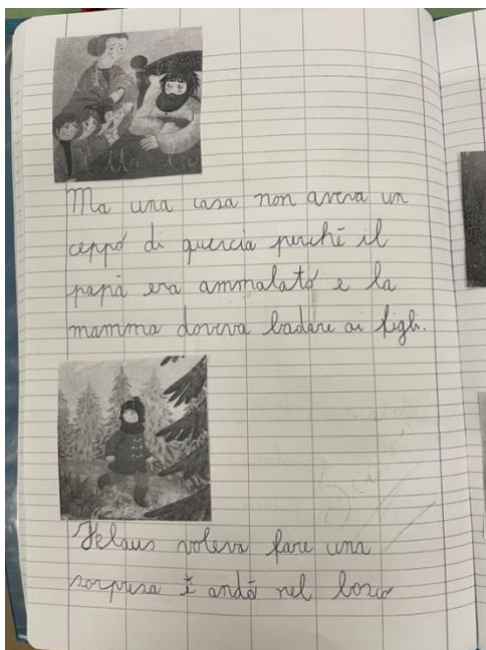 Ma una casa non aveva un
ceppo di quercia perché il
papà era ammalato e la
mamma doveva badare ai figli.
Kelaus voleva fare una
sorpresa è andò nel bosco